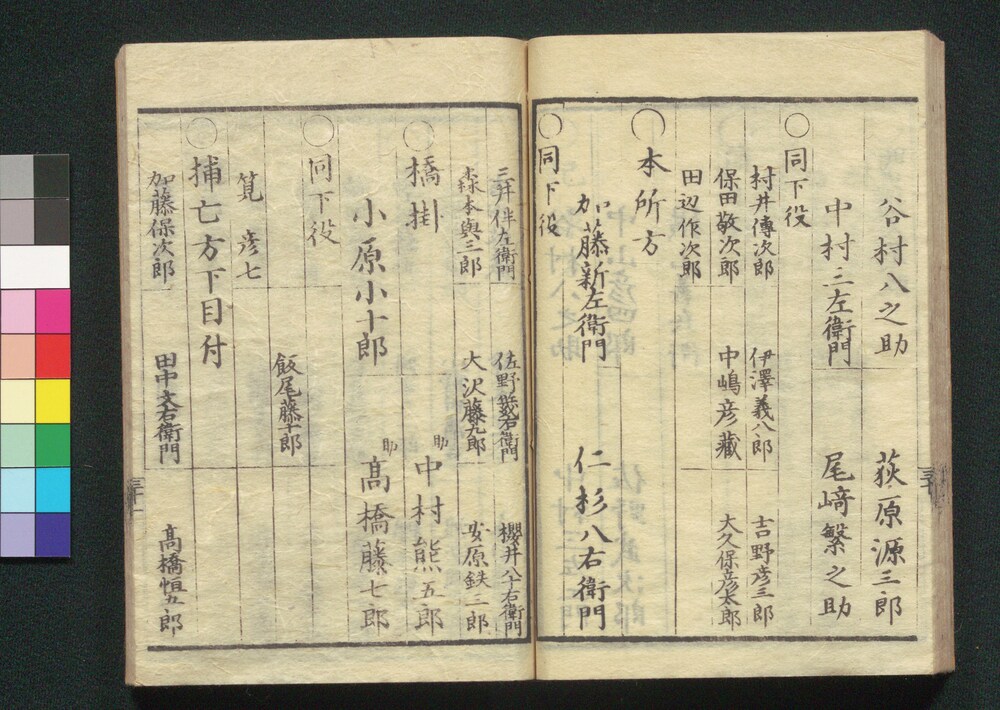 谷村八之助
荻原源三郎
中村三左衛門
尾﨑繁之助
○同下役
村井傳次郎
伊澤義八郎
吉野彦三郎
保田敬次郎
中嶋彦藏
大久保彦太郎
田辺作次郎
○本所方
加藤新左衛門
仁杉八右衛門
○同下役
三井伴左衛門
佐野幾右衛門
櫻井八十右衛門
森本與三郎
大沢藤九郎
安原鉄三郎
○橋掛
助
中村熊五郎
小原小十郎
助
髙橋藤七郎
○同下役
飯尾藤十郎
筧彦七
○捕亡方下目付
加藤保次郎
田中文右衛門
髙橋恒五郎